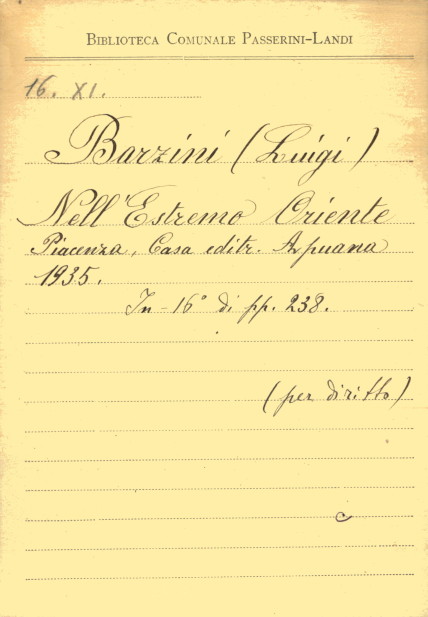 BIBLIOTECA COMUNALE PASSERINI-LANDI
16. XI.
Barzini (Luigi)
Nell'Estremo Oriente
Piacenza, Casa editr. Apuana
1935.
In-16° di pp. 238.
(per diritto)
c